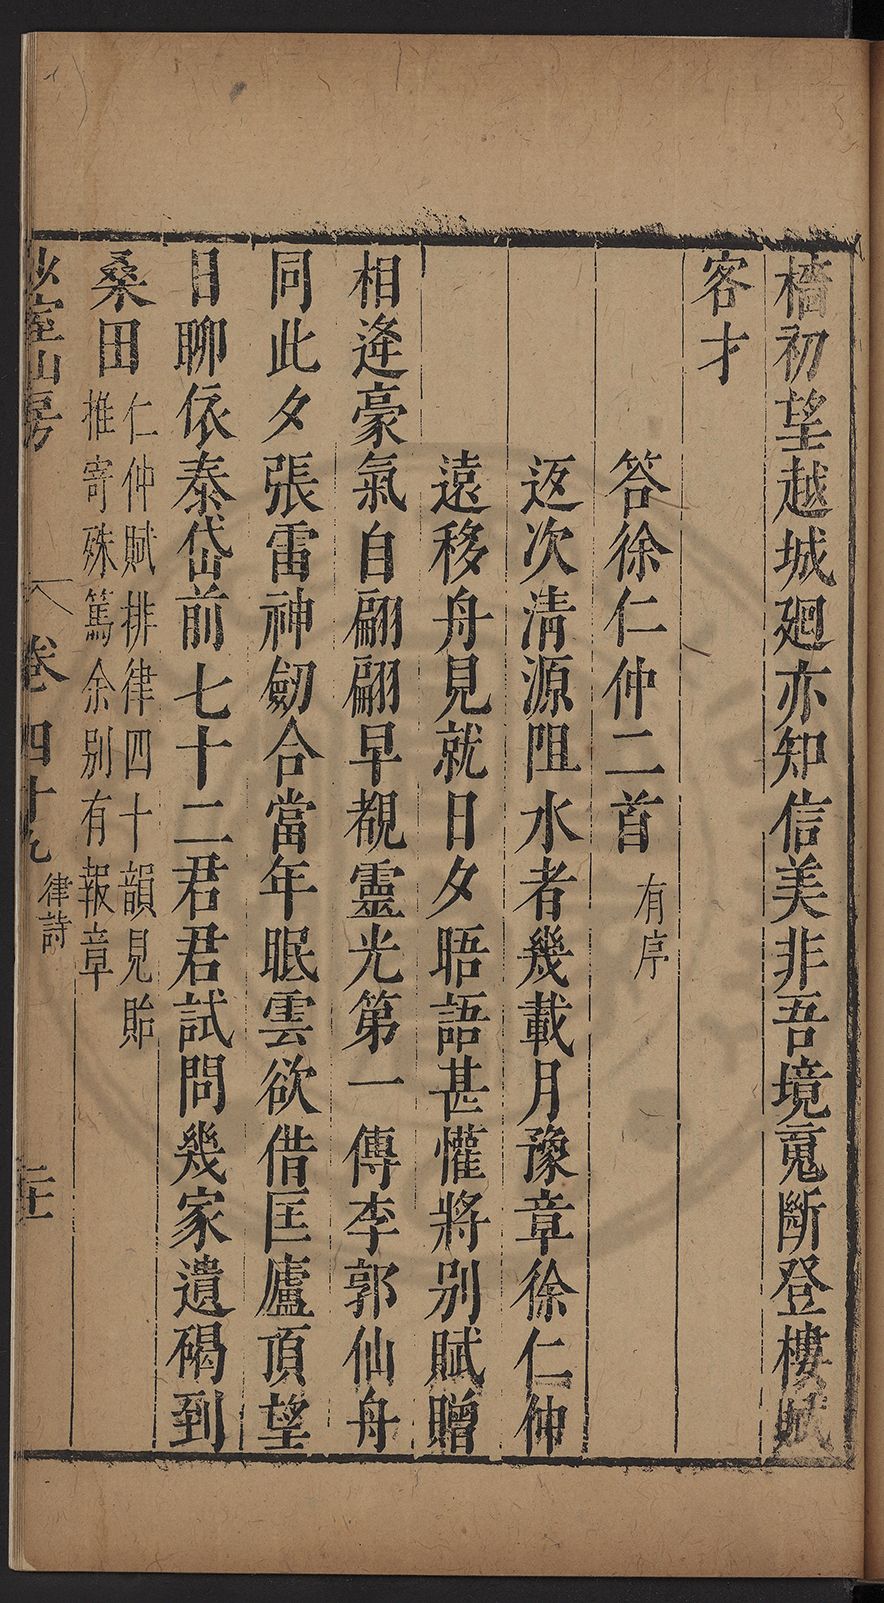 橋初望越城廻亦知信美非吾境䰟斷登樓賦
客才
答徐仁仲二首 有序
返次清源阻水者幾載月豫章徐仁仲
遠移舟見就日夕晤語甚懽將別賦贈
相逢豪氣自翩翩早覩靈光第一傳李郭仙舟
同此夕張雷神劒合當年眠雲欲借匡廬頂望
日聊依泰岱前七十二君君試問幾家遺碣到
桑田
仁仲賦排律四十韻見貽
推寄殊篤余别有報章
少室山房
卷四十九
律詩
二十一